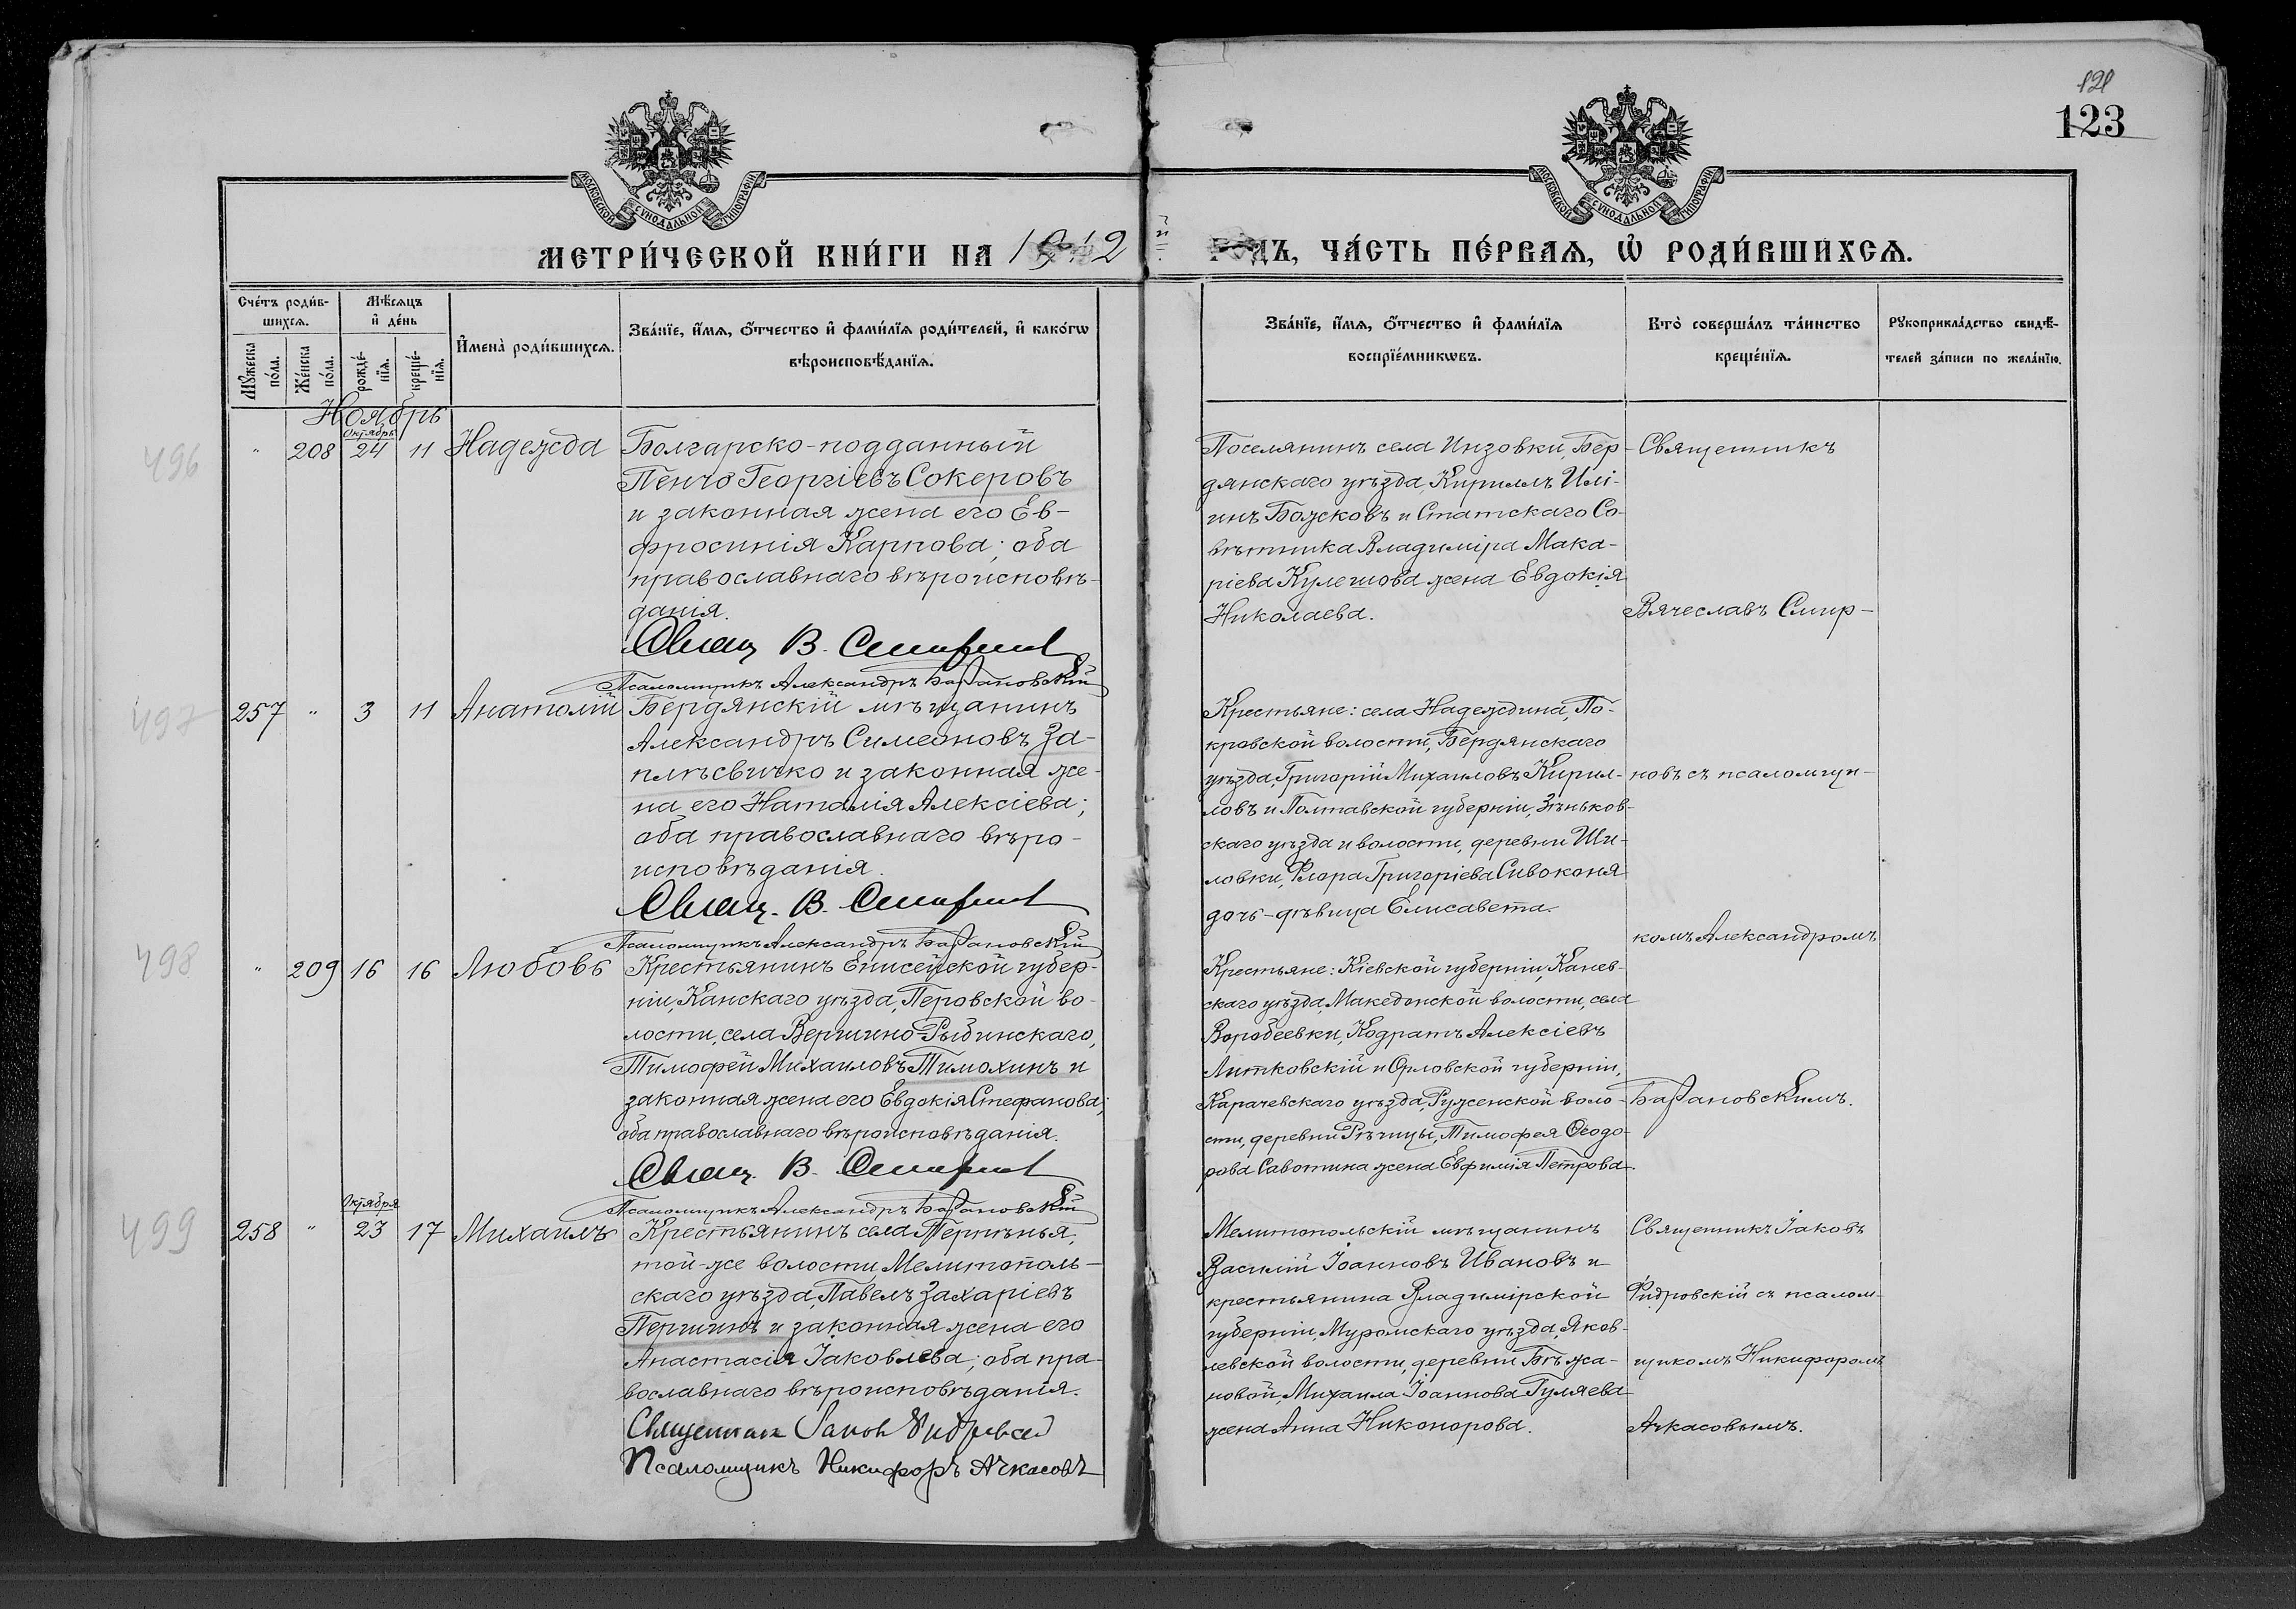 121
123
МОСКОВСКОЙ СѴНОДАЛЬНОЙ ТИПОГРАФІИ
МОСКОВСКОЙ СѴНОДАЛЬНОЙ ТИПОГРАФІИ
МЕТРИ́ЧЕСКОЙ КНИ́ГИ НА 1912й ГОДЪ, ЧА́СТЬ ПЕ́РВАѦ, Ѡ҆ РОДИ́ВШИХСѦ.
Сче́тъ роди́в-
шихсѧ.
Мꙋ́жеска по́ла.
Же́нска по́ла.
Мѣ́сѧцъ
и҆ де́нь
рожде́-
нїѧ.
креще́-
нїѧ.
И҆мена̀ роди́вшихсѧ.
Зва́нїе, и҆́мѧ, ѻ҆́тчество и҆ фами́лїѧ роди́телей, и҆ како́гѡ
вѣроисповѣ́данїѧ.
Зва́нїе, и҆́мѧ, ѻ҆́тчество и҆ фами́лїѧ
воспрїе́мникѡвъ.
Кто̀ соверша́лъ та́инство
креще́нїѧ.
Рꙋкоприкла́дство свидѣ́-
телей за́писи по жела́нїю.
Ноябрь
Октября
496
" 208 24 11 Надежда
Болгарско-подданный
Пенчо Георгіевъ Сокеровъ
и законная жена его Ев-
фросинія Карпова; оба
православнаго вѣроисповѣ-
данія.
Свящ. В. Смирнов
Псаломщикъ Александръ Базановскій
Поселянинъ села Инзовки, Бер-
дянскаго уѣзда, Кириллъ Илі-
инъ Божсковъ и Статскаго Со-
вѣтника Владиміра Мака-
ріева Кулешова жена Евдокія
Николаева.
Священникъ
Вячеславъ Смир-
497
257 " 3 11 Анатолій
Бердянскій мѣщанинъ
Александръ Симеоновъ За-
плѣсвичко и законная же-
на его Наталія Алексіева;
оба православнаго вѣро-
исповѣданія.
Свящ. В. Смирнов
Псаломщикъ Александръ Базановскій
Крестьяне: села Надеждина, По-
кровской волости, Бердянскаго
уѣзда, Григорій Михаиловъ Кирил-
ловъ и Полтавской губерніи, Зѣньков-
скаго уѣзда и волости, деревни Ши-
ловки, Флора Григоріева Сивоконя
дочь-дѣвица Елисавета.
новъ съ псаломщи-
комъ Александромъ
498
" 209 16 16 Любовь
Крестьянинъ Енисейской губер-
ніи, Канскаго уѣзда, Перовской во-
лости, села Вершино-Рыбинскаго,
Тимофей Михаиловъ Тимохинъ и
законная жена его Евдокія Стефанова;
оба православнаго вѣроисповѣданія.
Свящ. В. Смирнов
Псаломщикъ Александръ Базановскій
Крестьяне: Кіевской губерніи, Канев-
скаго уѣзда, Македонской волости, села
Воробеевки, Кодратъ Алексіевъ
Литковскій и Орловской губерніи,
Карачевскаго уѣзда, Руженской воло-
сти, деревни Рѣчицы, Тимофея Ѳеодо-
рова Савотина жена Евфимія Петрова.
Базановскимъ.
499
Октября
258 " 23 17 Михаилъ
Крестьянинъ села Терпѣнья,
той-же волости Мелитополь-
скаго уѣзда, Павелъ Захаріевъ
Першинъ и законная жена его
Анастасія Іаковлева; оба пра-
вославнаго вѣроисповѣданія.
Священник Іаков Фидровский
Псаломщикъ Никифоръ Ачкасовъ
Мелитопольскій мѣщанинъ
Василій Іоанновъ Ивановъ и
крестьянина Владимірской
губерніи, Муромскаго уѣзда, Яков-
левской волости, деревни Бѣжа-
новой, Михаила Іоаннова Гуляева
жена Анна Никонорова.
Священникъ Іаковъ
Фидровскій съ псалом-
щикомъ Никифоромъ
Ачкасовымъ.